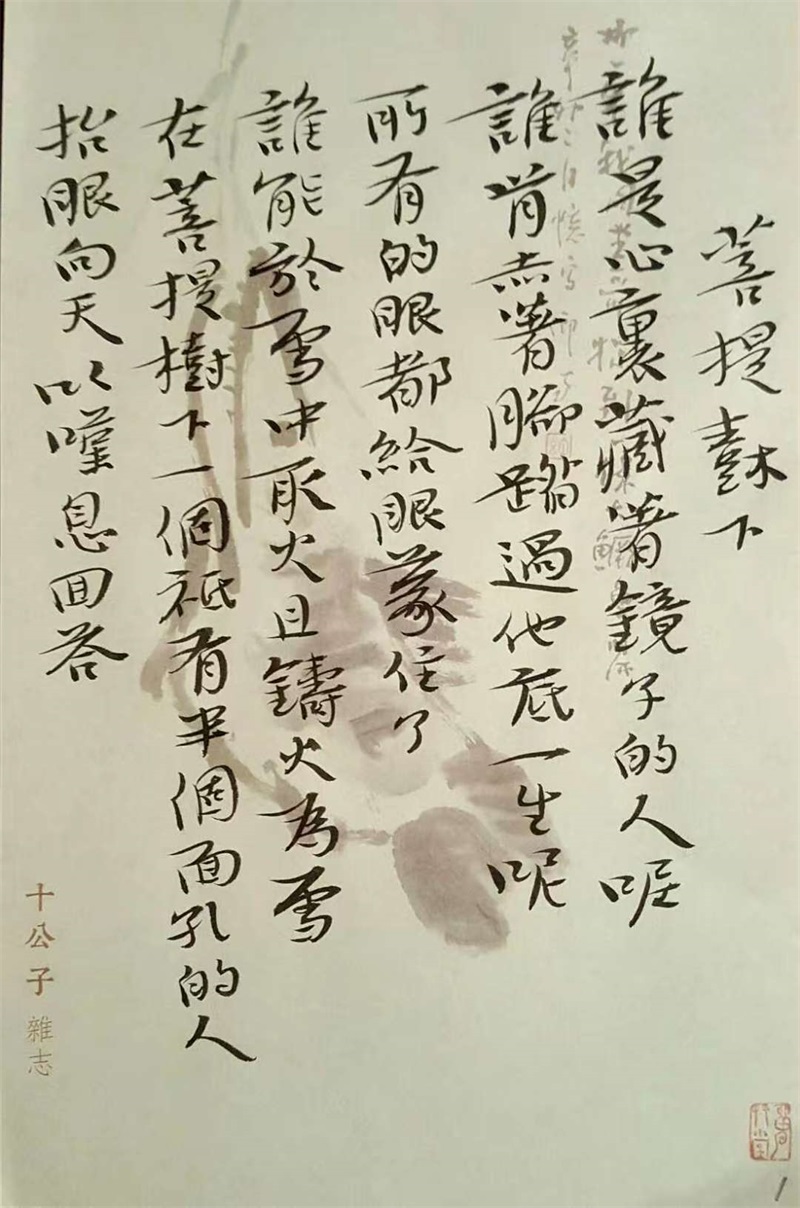 菩提樹下
誰是心裏藏著鏡子的人呢
誰肯赤著腳踏過他底一生呢
所有的眼都給眼蒙住了
誰能於雪中取火且鑄火為雪
在菩提樹下一個祇有半個面孔的人
抬眼向天以嘆息回答
十公子雜志
1